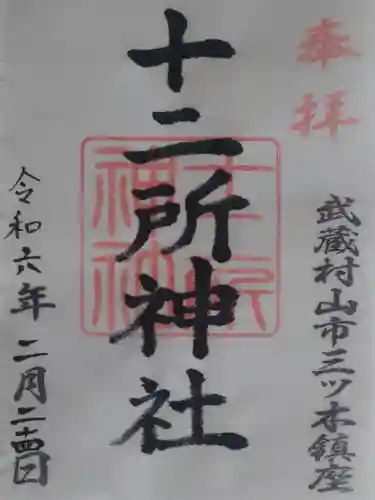 奉拝
武蔵村山市三ツ木鎮座
十二所神社
十二所
神社
令和六年二月二十四日